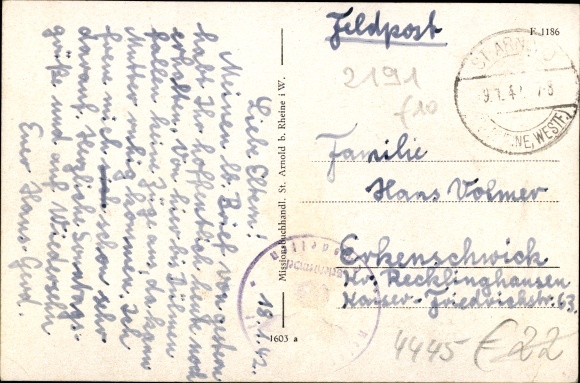 Feldpost
F 1186
ST. ARNOLD
RHEINE, WESTF.
2191
€10
Familie
Hans Volmer
Erkenschwick
Kr. Recklinghausen
Kaiser-Friedrichstr. 63.
4445 €22
Missionsbuchhandl. St. Arnold b. Rheine i W.
1603 a
18.1.42.
Liebe Eltern!
Meinen lb. Brief von gestern
habt Ihr hoffentlich auch noch
erhalten. Von hier bis Dülmen
fallen keine Züge an, da kann
Mutter ruhig kommen. Ich
freue mich schon sehr
darauf. Herzliche Sonntags-
grüße und auf Wiedersehn
Euer Hans-Gerd.